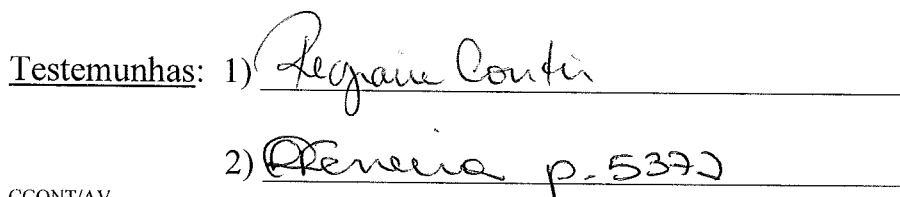 Testemunhas: 1) Regiane Contin
2) PFerreira p. 5372
CCONT/AV